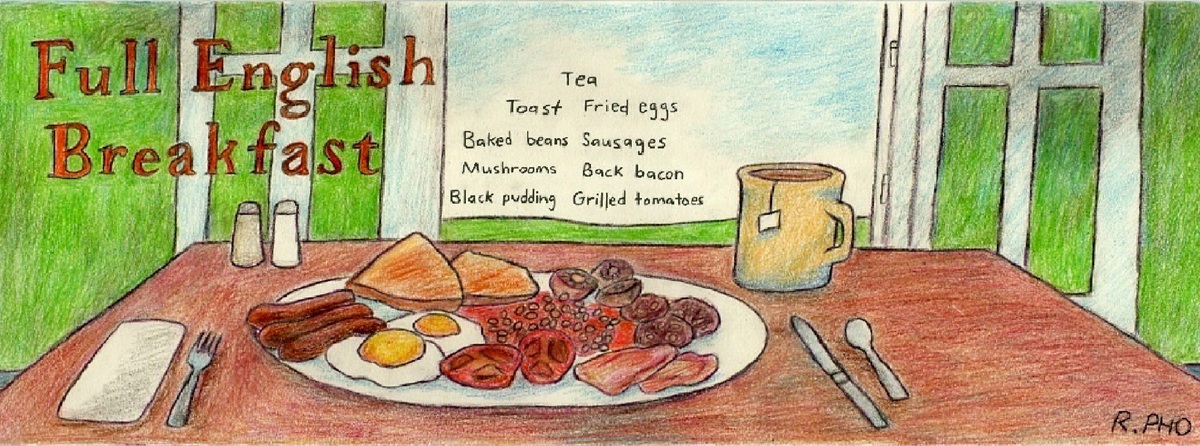 Full English
Breakfast
Tea
Toast Fried eggs
Baked beans Sausages
Mushrooms Back bacon
Black pudding Grilled tomatoes
R. PHO